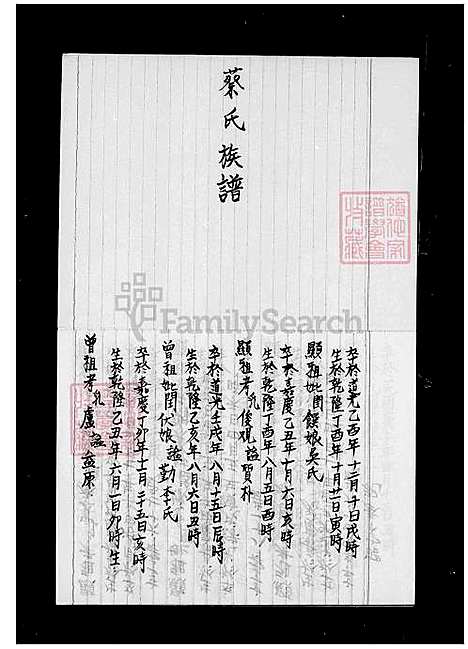 蔡氏族譜
猶他家
譜學會
收藏
FamilySearch
曾祖考孔盧諡益原
生於乾隆乙丑年六月一日卯時生
卒於嘉慶丁卯年十二月二十五日亥時
曾祖妣閏伏娘諡勤李氏
生於乾隆乙亥年八月六日丑時
卒於道光壬戌年八月十五日辰時
顯祖考孔俊覌諡賢朴
生於乾隆丁酉年八月五日酉時
卒於嘉慶乙丑年七月六日亥時
顯祖妣閏饌娘吳氏
生於乾隆丁酉年十月廿一日寅時
卒於道光乙酉年十二月十日戌時